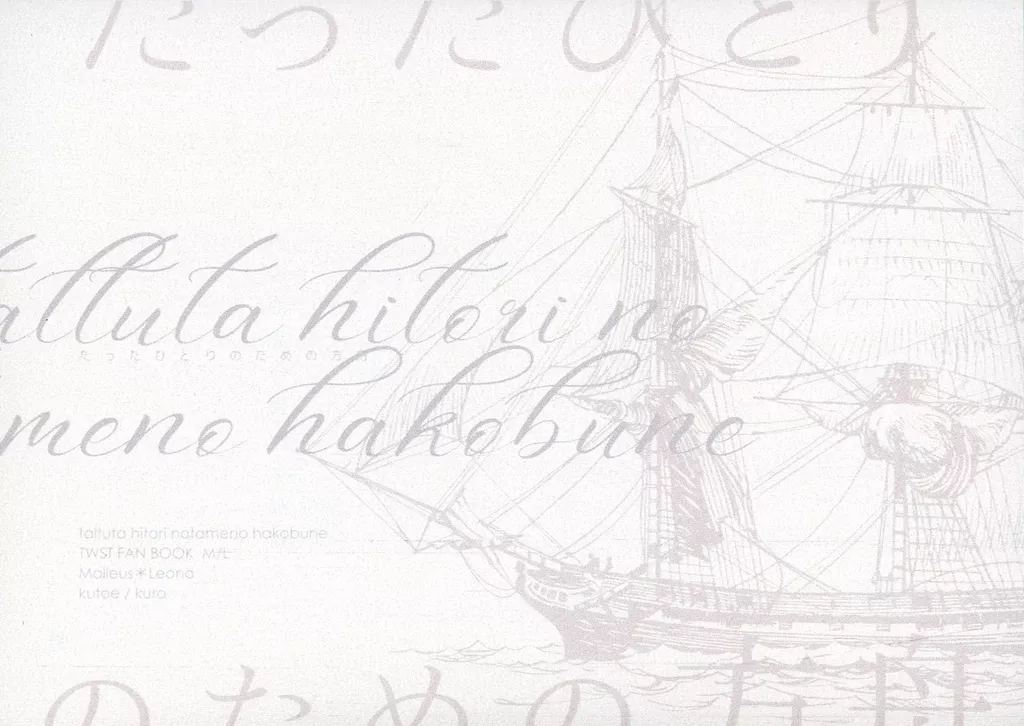 たったひとり
tattuta hitori no
たったひとりのための方舟
tameno hakobune
taltuta hitori notameno hakobune
TWST FAN BOOK M/L
Malleus*Leona
kutoe / kuro
のための方舟